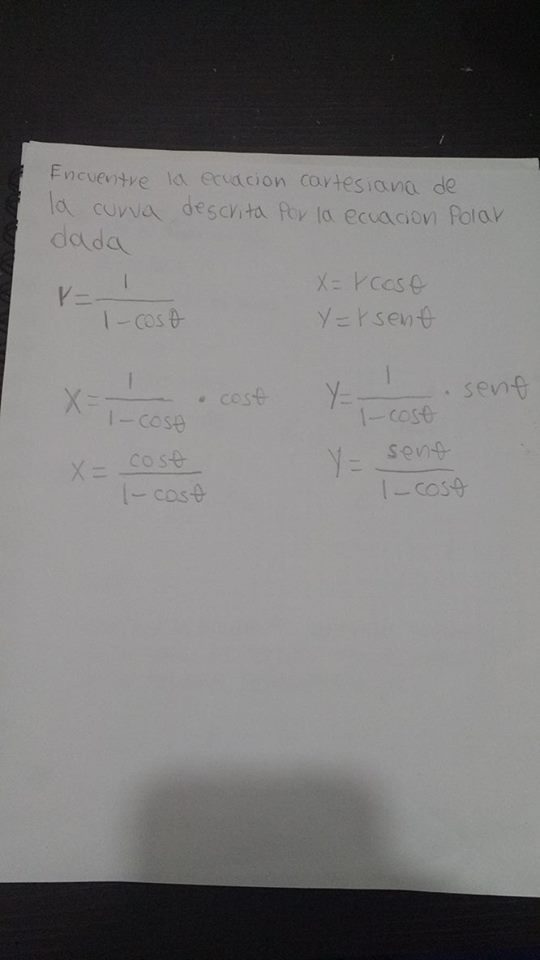 Encuentre la ecuacion cartesiana de
la curva descrita Por la ecuacion Polar
dada
r = 1 / (1 - cosθ)    x = r cosθ
y = r senθ
x = 1 / (1 - cosθ) · cosθ    y = 1 / (1 - cosθ) · senθ
x = cosθ / (1 - cosθ)    y = senθ / (1 - cosθ)